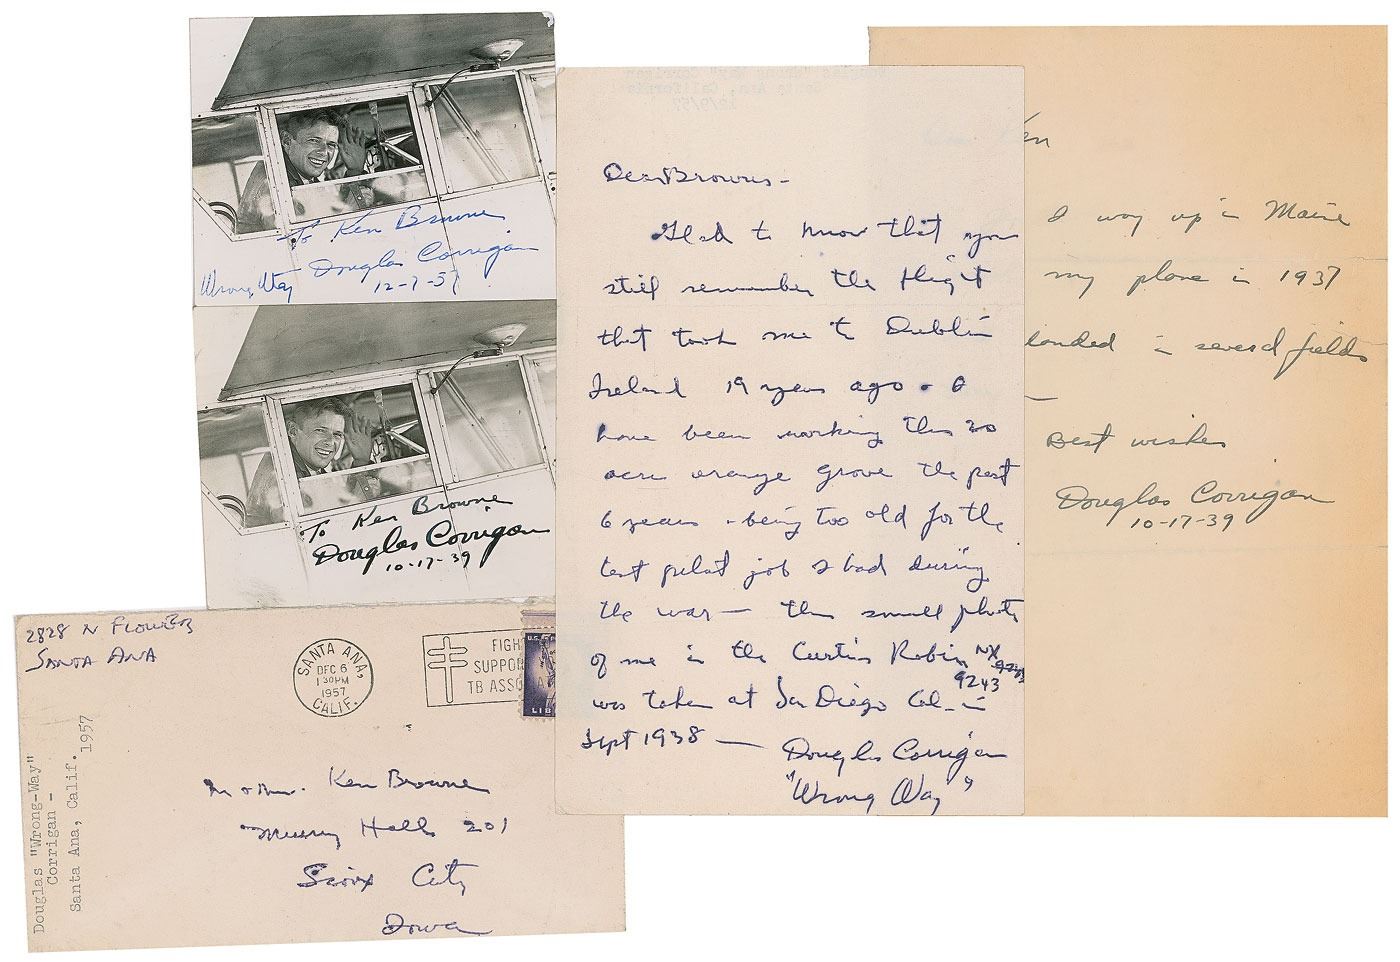 To Ken Browne
Wrong Way Douglas Corrigan
12-7-57
To Ken Browne
Douglas Corrigan
10-17-39
2828 N FLOWER
SANTA ANA
SANTA ANA,
DEC 6
1 30 PM
1957
CALIF.
FIGH
SUPPOR
TB ASSO
U.S.
LIB
Ken Browne
Hall 201
Sioux City
Iowa
Douglas "Wrong-Way"
Corrigan -
Santa Ana, Calif. 1957
Douglas "Wrong Way" Corrigan
Santa Ana, California
12/9/57
Dear Brownes -
Glad to know that you
still remember the flight
that took me to Dublin
Ireland 19 years ago. I
have been working this 20
acre orange grove the past
6 years - being too old for the
test pilot job I had during
the war — this small photo
of me in the Curtiss Robin NX
9243
was taken at San Diego Cal. in
Sept 1938 — Douglas Corrigan
"Wrong Way"
Ken
I way up in Maine
my plane in 1937
landed in several fields
—
Best wishes
Douglas Corrigan
10-17-39